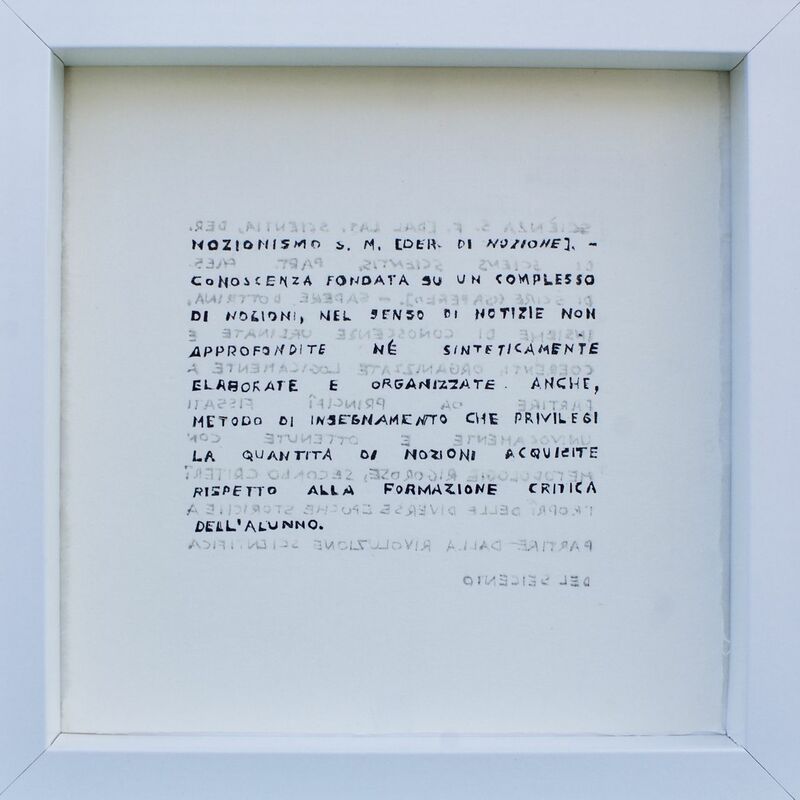 SCIÈNZA S. F. [DAL LAT. SCIENTIA, DER.
NOZIONISMO S. M. [DER. DI NOZIONE]. –
DI SCIENS SCIENTIS, PART. PRES.
CONOSCENZA FONDATA SU UN COMPLESSO
DI SCIRE (SAPERE)]. – SAPERE, DOTTRINA,
DI NOZIONI, NEL SENSO DI NOTIZIE NON
INSIEME DI CONOSCENZE ORDINATE E
APPROFONDITE NÉ SINTETICAMENTE
COERENTI, ORGANIZZATE LOGICAMENTE A
ELABORATE E ORGANIZZATE. ANCHE,
PARTIRE DA PRINCIPÎ FISSATI
METODO DI INSEGNAMENTO CHE PRIVILEGI
UNIVOCAMENTE E OTTENUTE CON
LA QUANTITÀ DI NOZIONI ACQUISITE
METODOLOGIE RIGOROSE, SECONDO CRITERÎ
RISPETTO ALLA FORMAZIONE CRITICA
PROPRÎ DELLE DIVERSE EPOCHE STORICHE A
DELL'ALUNNO.
PARTIRE DALLA RIVOLUZIONE SCIENTIFICA
DEL SEICENTO